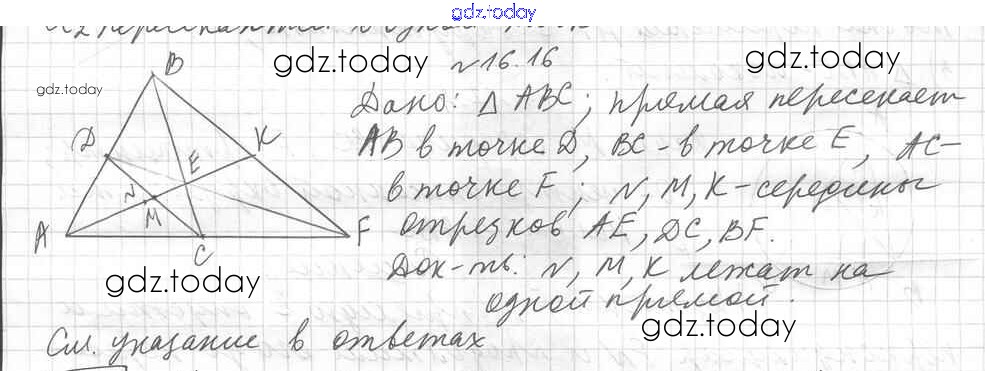 gdz.today
и2 пересекаются в одной точке
gdz.today
№16.16
gdz.today
gdz.today
Дано: △ ABC; прямая пересекает
AB в точке D, BC - в точке E, AC -
в точке F; N, M, K - середины
отрезков AE, DC, BF.
Док-ть: N, M, K лежат на
одной прямой.
B
D
K
E
N
M
A
C
F
gdz.today
gdz.today
См. указание в ответах